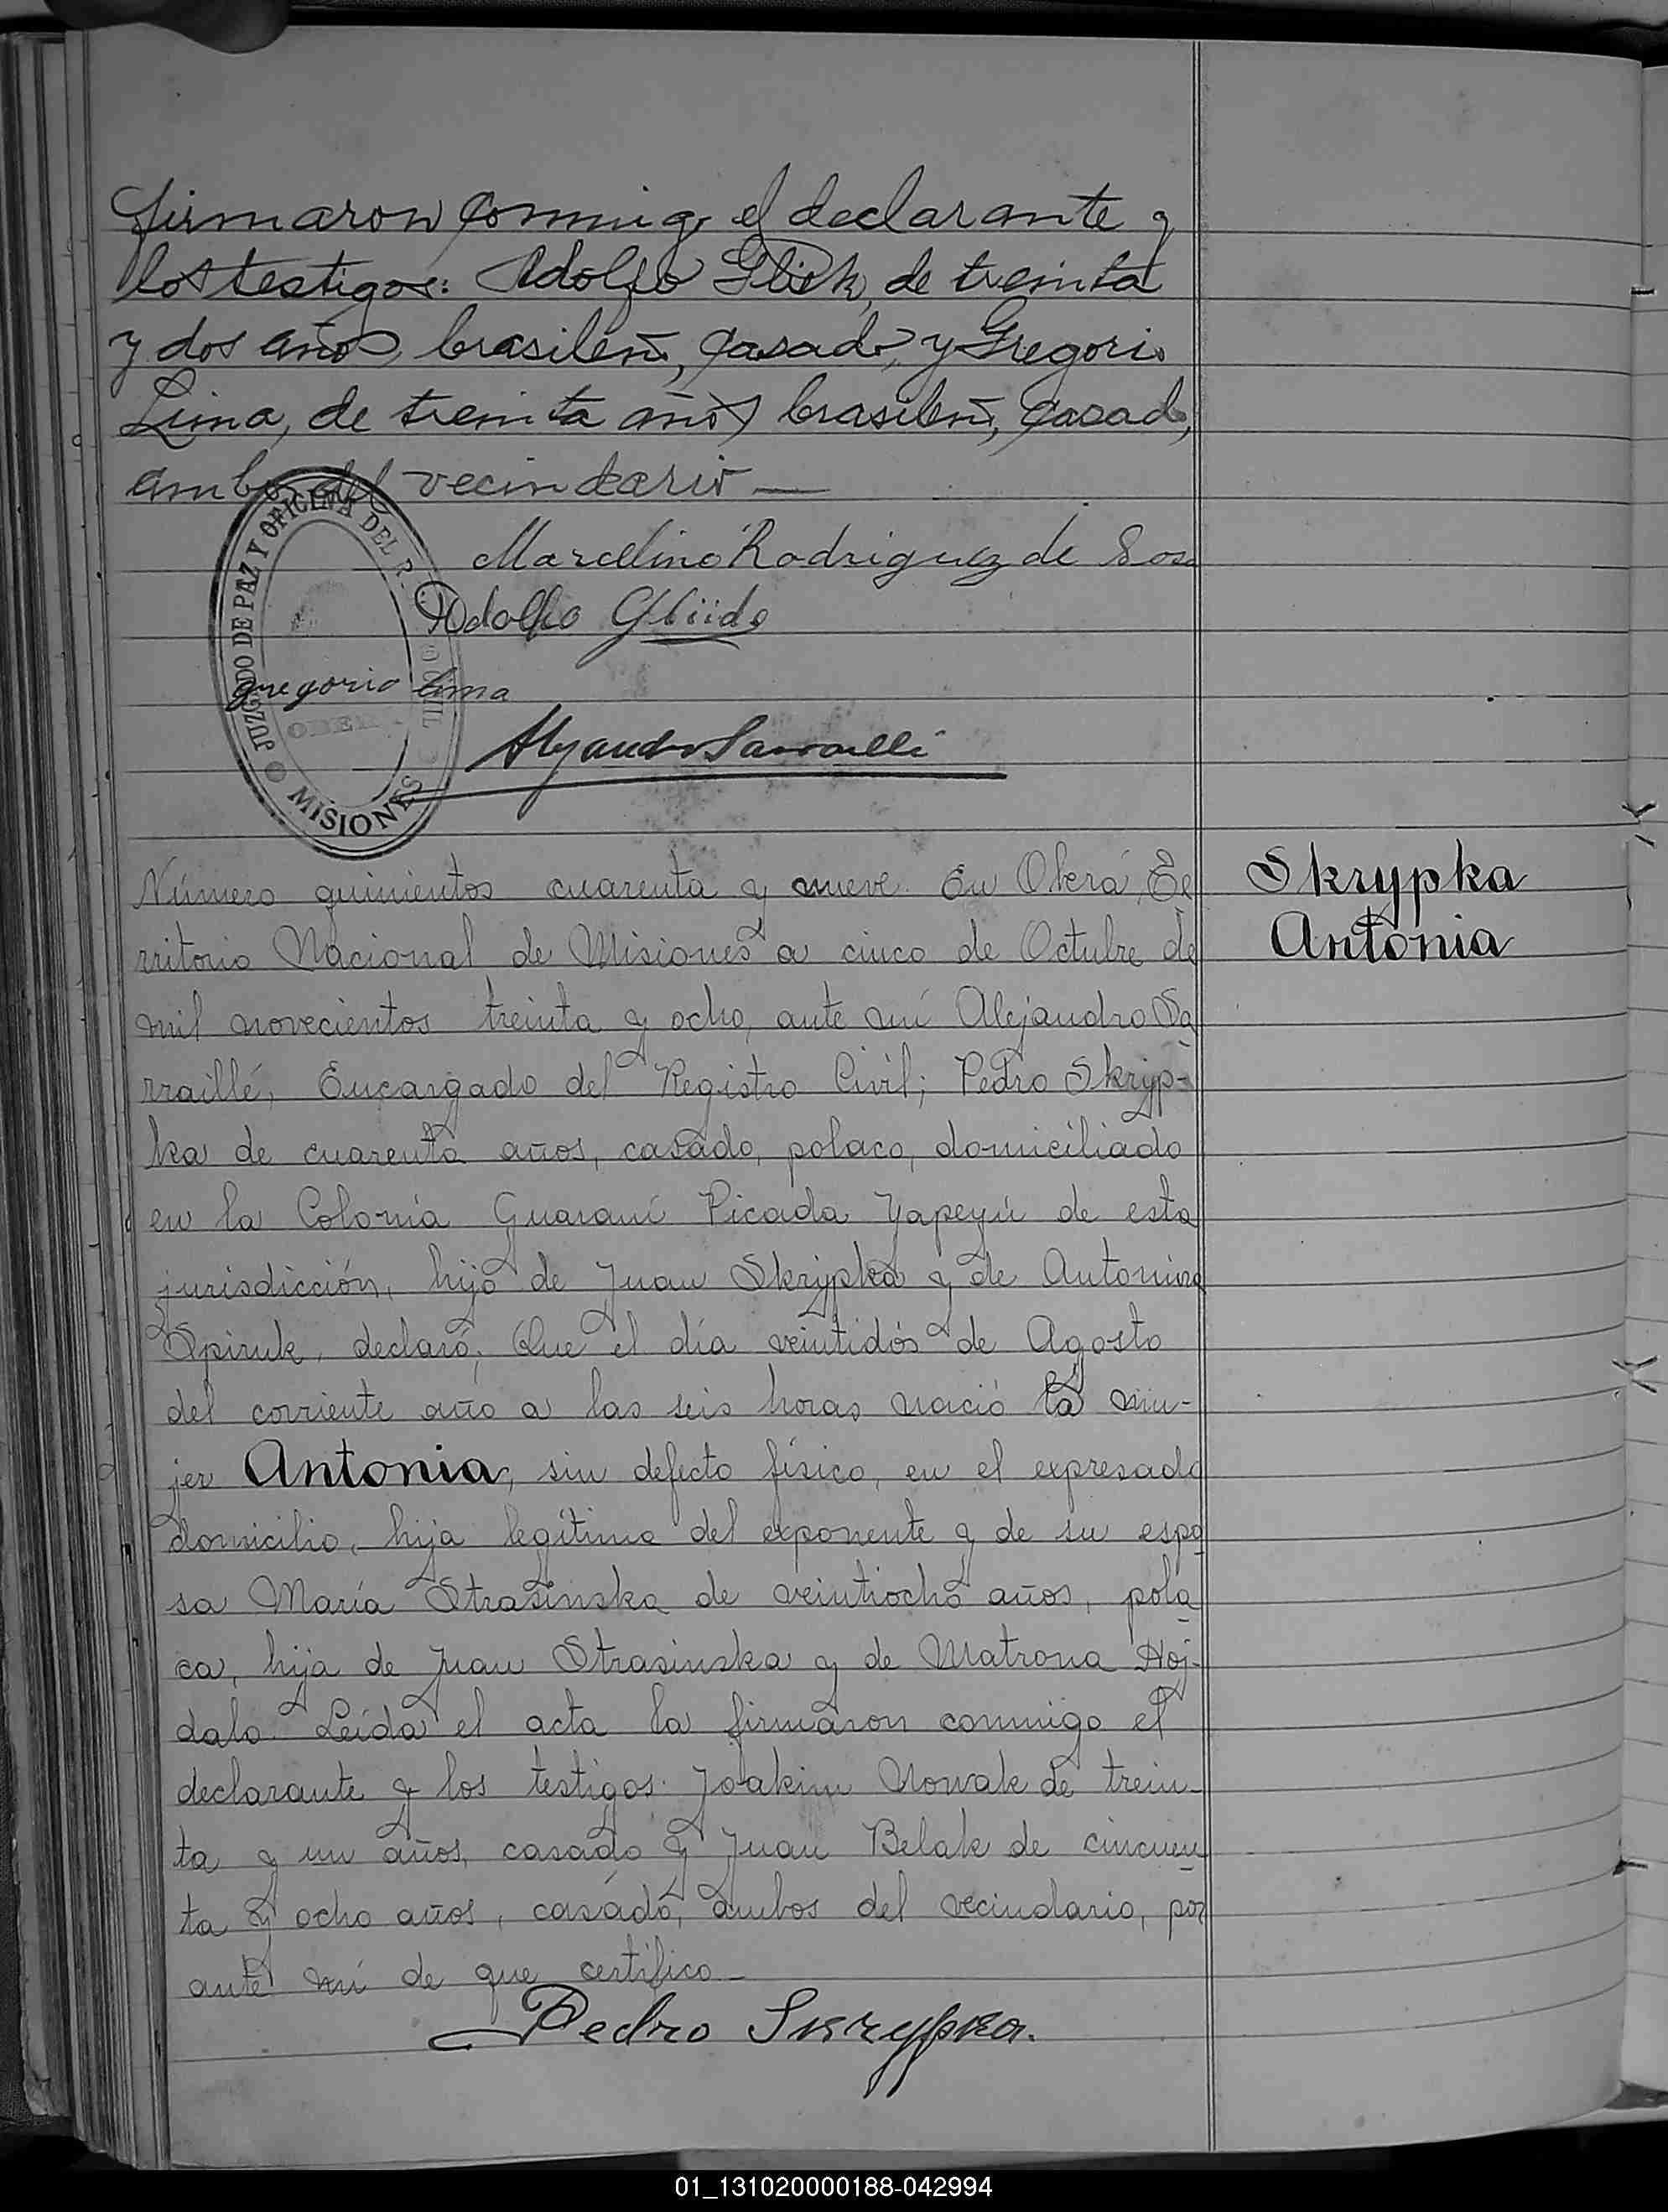 firmaron conmigo el declarante y
los testigos: Adolfo Glick, de treinta
y dos años, brasileño, casado, y Gregorio
Lima, de treinta años brasileño, casado,
ambos del vecindario —
Marcelino Rodriguez de Sosa
Adolfo
gregorio lima
JUZGADO DE PAZ Y OFICINA DEL R. CIVIL
OBERA
MISIONES
Número quinientos cuarenta y nueve. En Oberá, Te
rritorio Nacional de Misiones a cinco de Octubre de
mil novecientos treinta y ocho, ante mí Alejandro Sa
rraillé, Encargado del Registro Civil; Pedro Skryp-
ka de cuarenta años, casado, polaco, domiciliado
en la Colonia Guaraní Picada Yapeyú de esta
jurisdicción, hijo de Juan Skrypka y de Antonina
Spiruk, declaró: Que el día veintidós de Agosto
del corriente año a las seis horas nació la mu-
jer Antonia, sin defecto físico, en el expresado
domicilio, hija legítima del exponente y de su espo
sa María Strasinska de veintiocho años, pola
ca, hija de Juan Strasinska y de Matrona Hoj-
dalo. Leída el acta la firmaron conmigo el
declarante y los testigos: Joakim Nowak de trein-
ta y un años, casado y Juan Belak de cincuen
ta y ocho años, casado, ambos del vecindario, por
ante mí de que certifico —
Pedro Skrypka.
Skrypka
Antonia
01_131020000188-042994